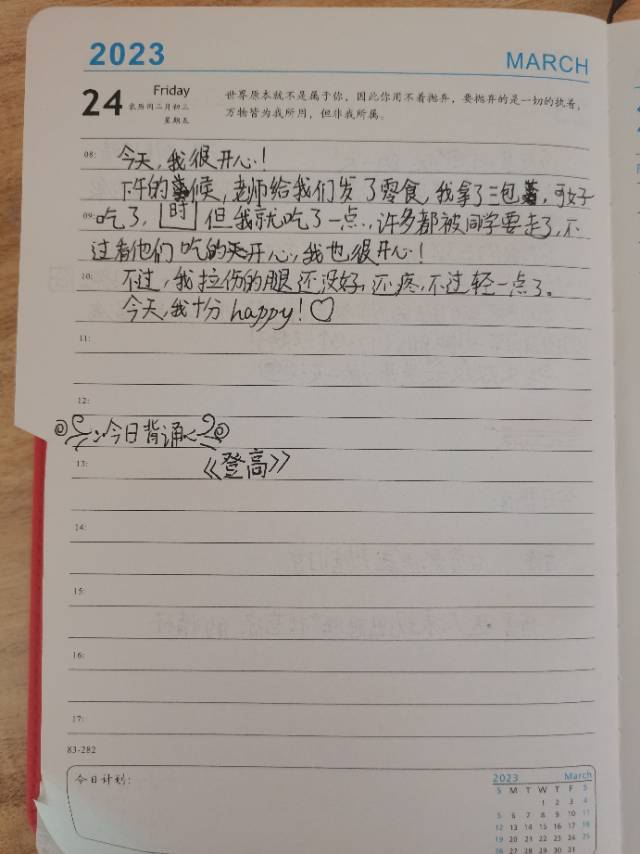 2023 MARCH
24 Friday
农历闰二月初三
星期五
世界原本就不是属于你，因此你用不着抛弃，要抛弃的是一切的执着。
万物皆为我所用，但非我所属。
08: 今天，我很开心！
下午的候，老师给我们发了零食，我拿了三包，可好
09: 吃了，时 但我就吃了一点，许多都被同学要走了，不
过看他们吃的开心，我也很开心！
10: 不过，我拉伤的腿还没好，还疼，不过轻一点了。
今天，我十分happy！♡
11:
12:
今日背诵
13: 《登高》
14:
15:
16:
17:
83-282
今日计划：
2023 March
S M T W T F S
1 2 3 4
5 6 7 8 9 10 11
12 13 14 15 16 17 18
19 20 21 22 23 24 25
26 27 28 29 30 31